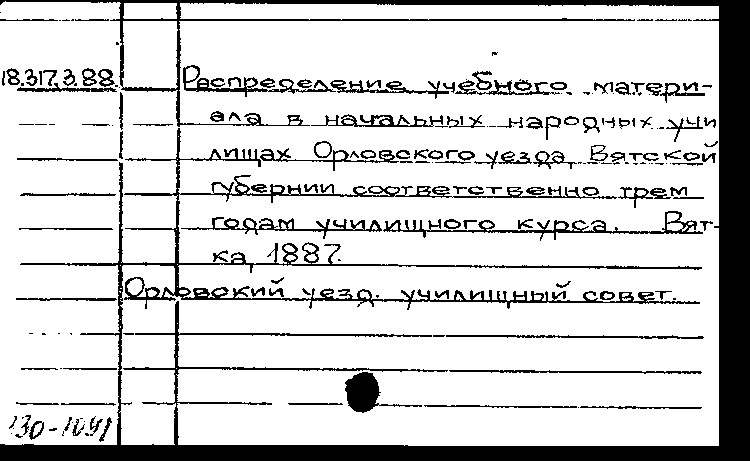 18.317.3.88 Распределение учебного матери-
ала в начальных народных учи
лищах Орловского уезда, Вятской
губернии соответственно трем
годам училищного курса. Вят-
ка, 1887.
Орловский уезд. училищный совет.
130-1041